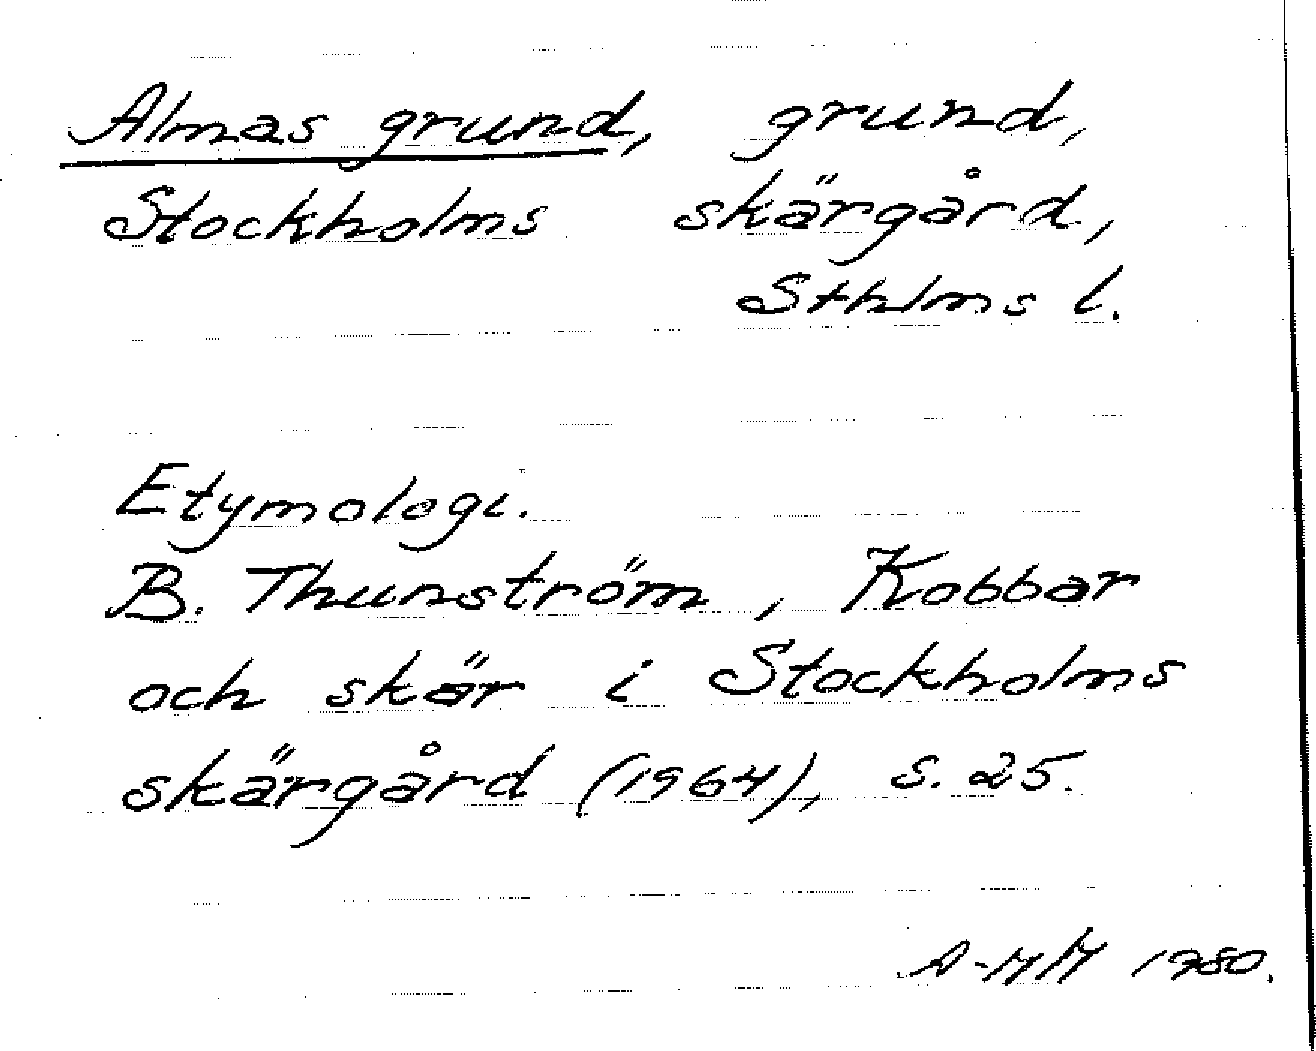 Almas grund, grund,
Stockholms skärgård,
Sthlms l.
Etymologi.
B. Thunström, Kobbar
och skär i Stockholms
skärgård (1964), s. 25.
A-MH 1980.